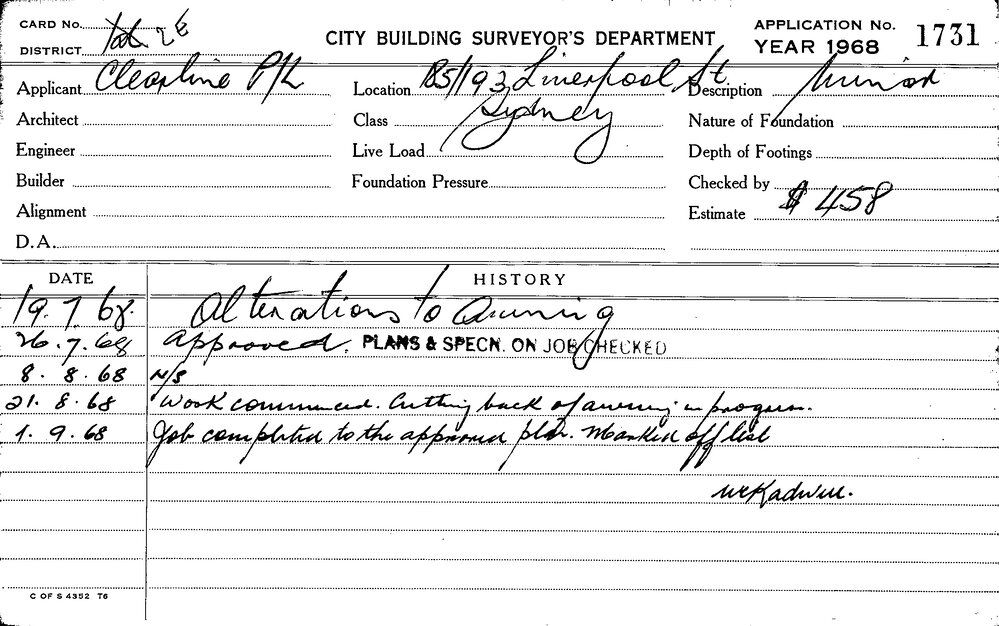 CARD No. 2E
DISTRICT
CITY BUILDING SURVEYOR'S DEPARTMENT
APPLICATION No. 1731
YEAR 1968
Applicant Clearline P/L
Location 185/193 Liverpool St
Sydney
Description Minor
Architect
Class
Nature of Foundation
Engineer
Live Load
Depth of Footings
Builder
Foundation Pressure
Checked by
Alignment
Estimate $ 458
D.A.
DATE HISTORY
19.7.68. Alterations to Awning
26.7.68 Approved. PLANS & SPECN. ON JOB CHECKED
8.8.68 N/S
21.8.68 Work commenced. Cutting back of awning in progress.
1.9.68 Job completed to the approved plan. Marked off list
C OF S 4352 T6